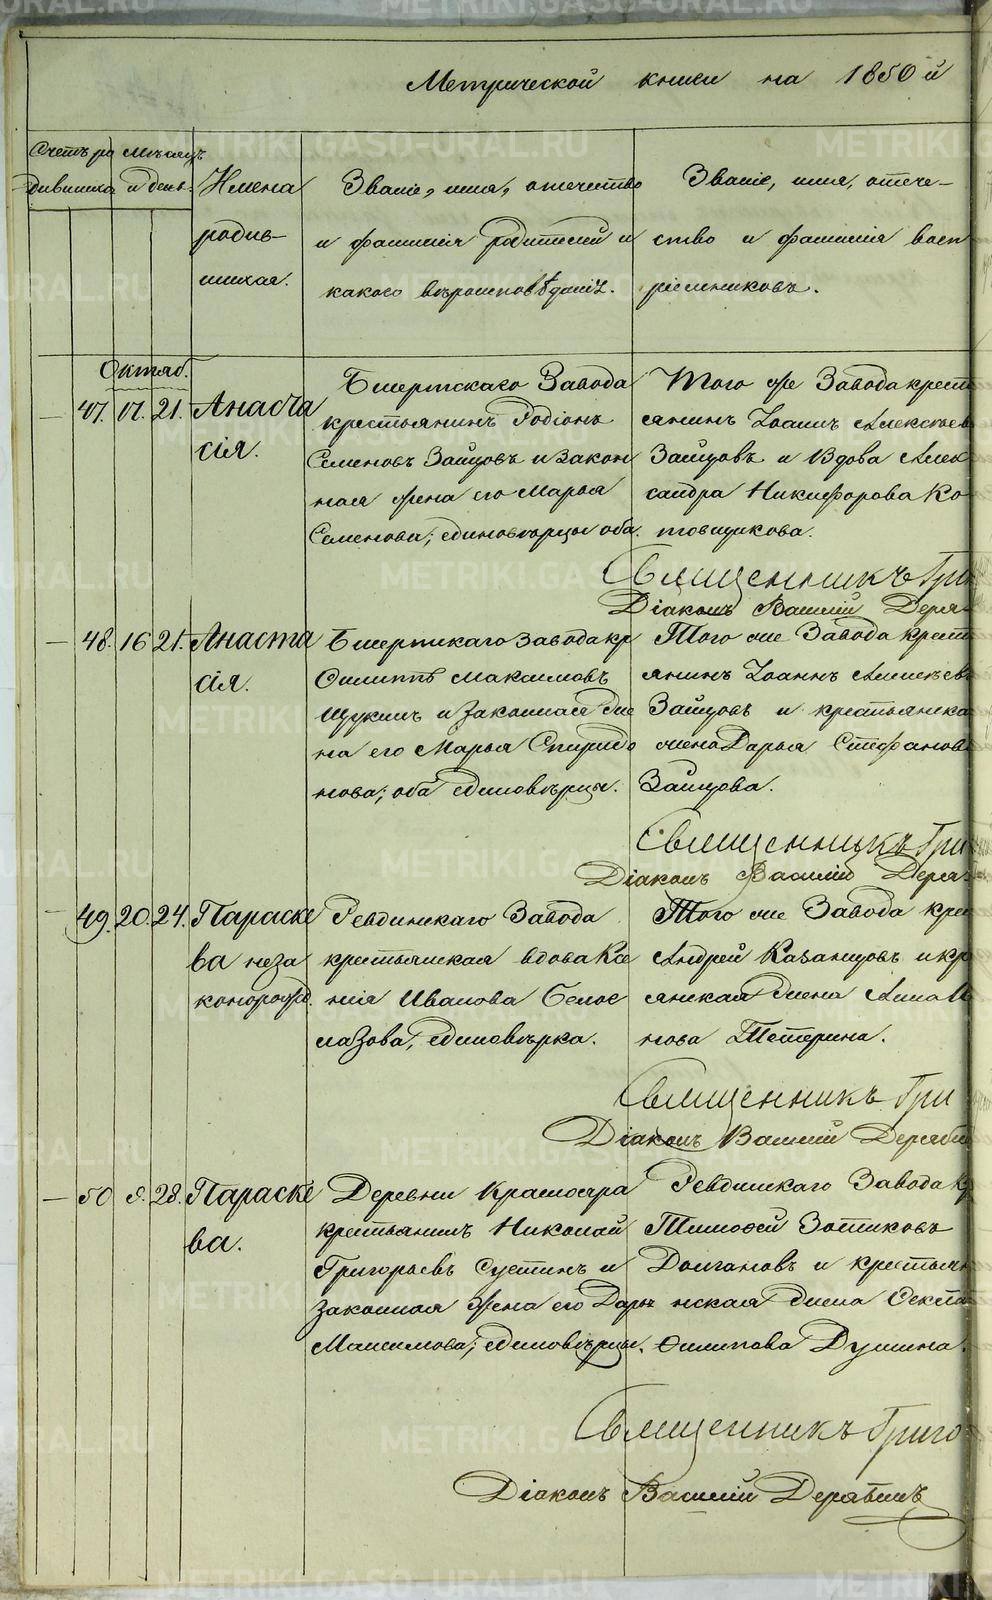 Метрической книги на 1850 й
Счетъ ро Мѣсяцъ
дившихся и день.
Имена
родив-
шихся.
Званіе, имя, отечество
и фамилія родителей и
какого вѣроисповѣданія.
Званіе, имя, отече-
ство и фамилія восп
ріемниковъ.
Октяб.
47. 17. 21. Анаста
сія.
Бисертскаго Завода
крестьянинъ Родіонъ
Семеновъ Зайцовъ и закон
ная жена его Марья
Семенова; единовѣрцы оба.
Того же Завода крест
янинъ Іоаннъ Алексѣев
Зайцовъ и Вдова Алек
сандра Никифорова Ко
товщикова.
Священникъ Гри
Діаконъ Василій Деря
48. 16 21. Анаста
сія.
Бисертскаго Завода кр
Филиппъ Максимовъ
Щукинъ и законная же
на его Марья Спиридо
нова; оба единовѣрцы.
Того же Завода крест
янинъ Іоаннъ Алексѣев
Зайцовъ и крестьянска
жена Дарья Стефанов
Зайцова.
Священникъ Гри
Діаконъ Василій Деря
49. 20. 24. Параске
ва неза
конорожд.
Ревдинскаго Завода
крестьянская вдова Ксе
нія Иванова Белог
лазова, единовѣрка.
Того же Завода крес
Андрей Казанцовъ и кр
янская жена Анна И
нова Тетерина.
Священникъ Гри
Діаконъ Василій Деряби
50 28. Параске
ва.
Деревни Краснояра
крестьянинъ Николай
Григорьевъ Сустинъ и
законная жена его Дарья
Максимова; единовѣрцы.
Ревдинскаго Завода кр
Тимофей Зотиковъ
Долгановъ и крестьян
нская жена Фекла
Филипова Душина.
Священникъ Григо
Діаконъ Василій Дерябинъ
METRIKI.GASO-URAL.RU